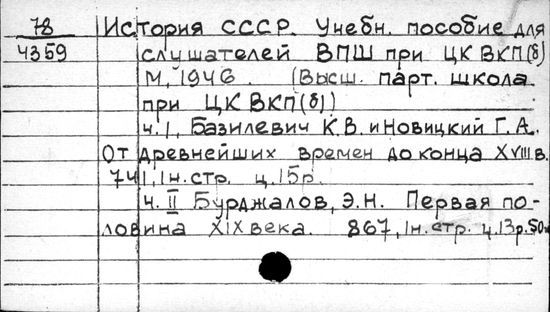 78 История СССР. Учебн. пособие для
4359 слушателей ВПШ при ЦК ВКП(б)
М., 1946. (Высш. парт. школа
при ЦК ВКП(б))
ч. I, Базилевич К.В. и Новицкий Г.А.
От древнейших времен до конца XVIII в.
741, 1н. стр. ц. 15р.
ч. II Бурджалов, Э.Н. Первая по-
ловина XIX века. 867, 1н. стр. ц. 13р. 50к